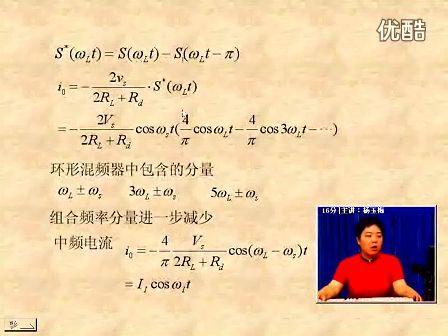 优酷
S*(ω_L t) = S(ω_L t) − S(ω_L t − π)
i₀ = − 2v_s / (2R_L + R_d) · S*(ω_L t)
= − 2V_s / (2R_L + R_d) cos ω_s t (4/π cos ω_L t − 4/π cos 3ω_L t − ···)
环形混频器中包含的分量
ω_L ± ω_s 3ω_L ± ω_s 5ω_L ± ω_s
组合频率分量进一步减少
中频电流 i₀ = − 4/π V_s / (2R_L + R_d) cos(ω_L − ω_s)t
= I_I cos ω_I t
16分 主讲:杨玉梅